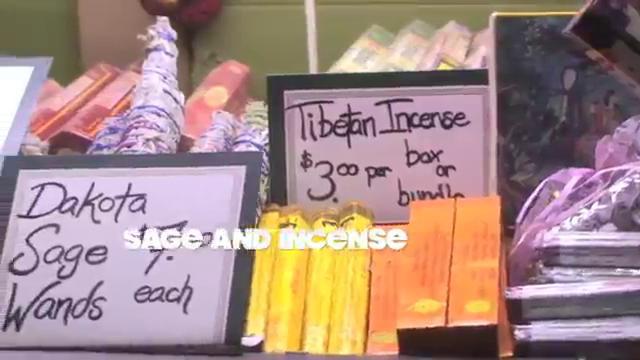 Tibetan Incense
$3.00 per box
or
bundle
Dakota
Sage $7.
Wands each
SAGE AND INCENSE